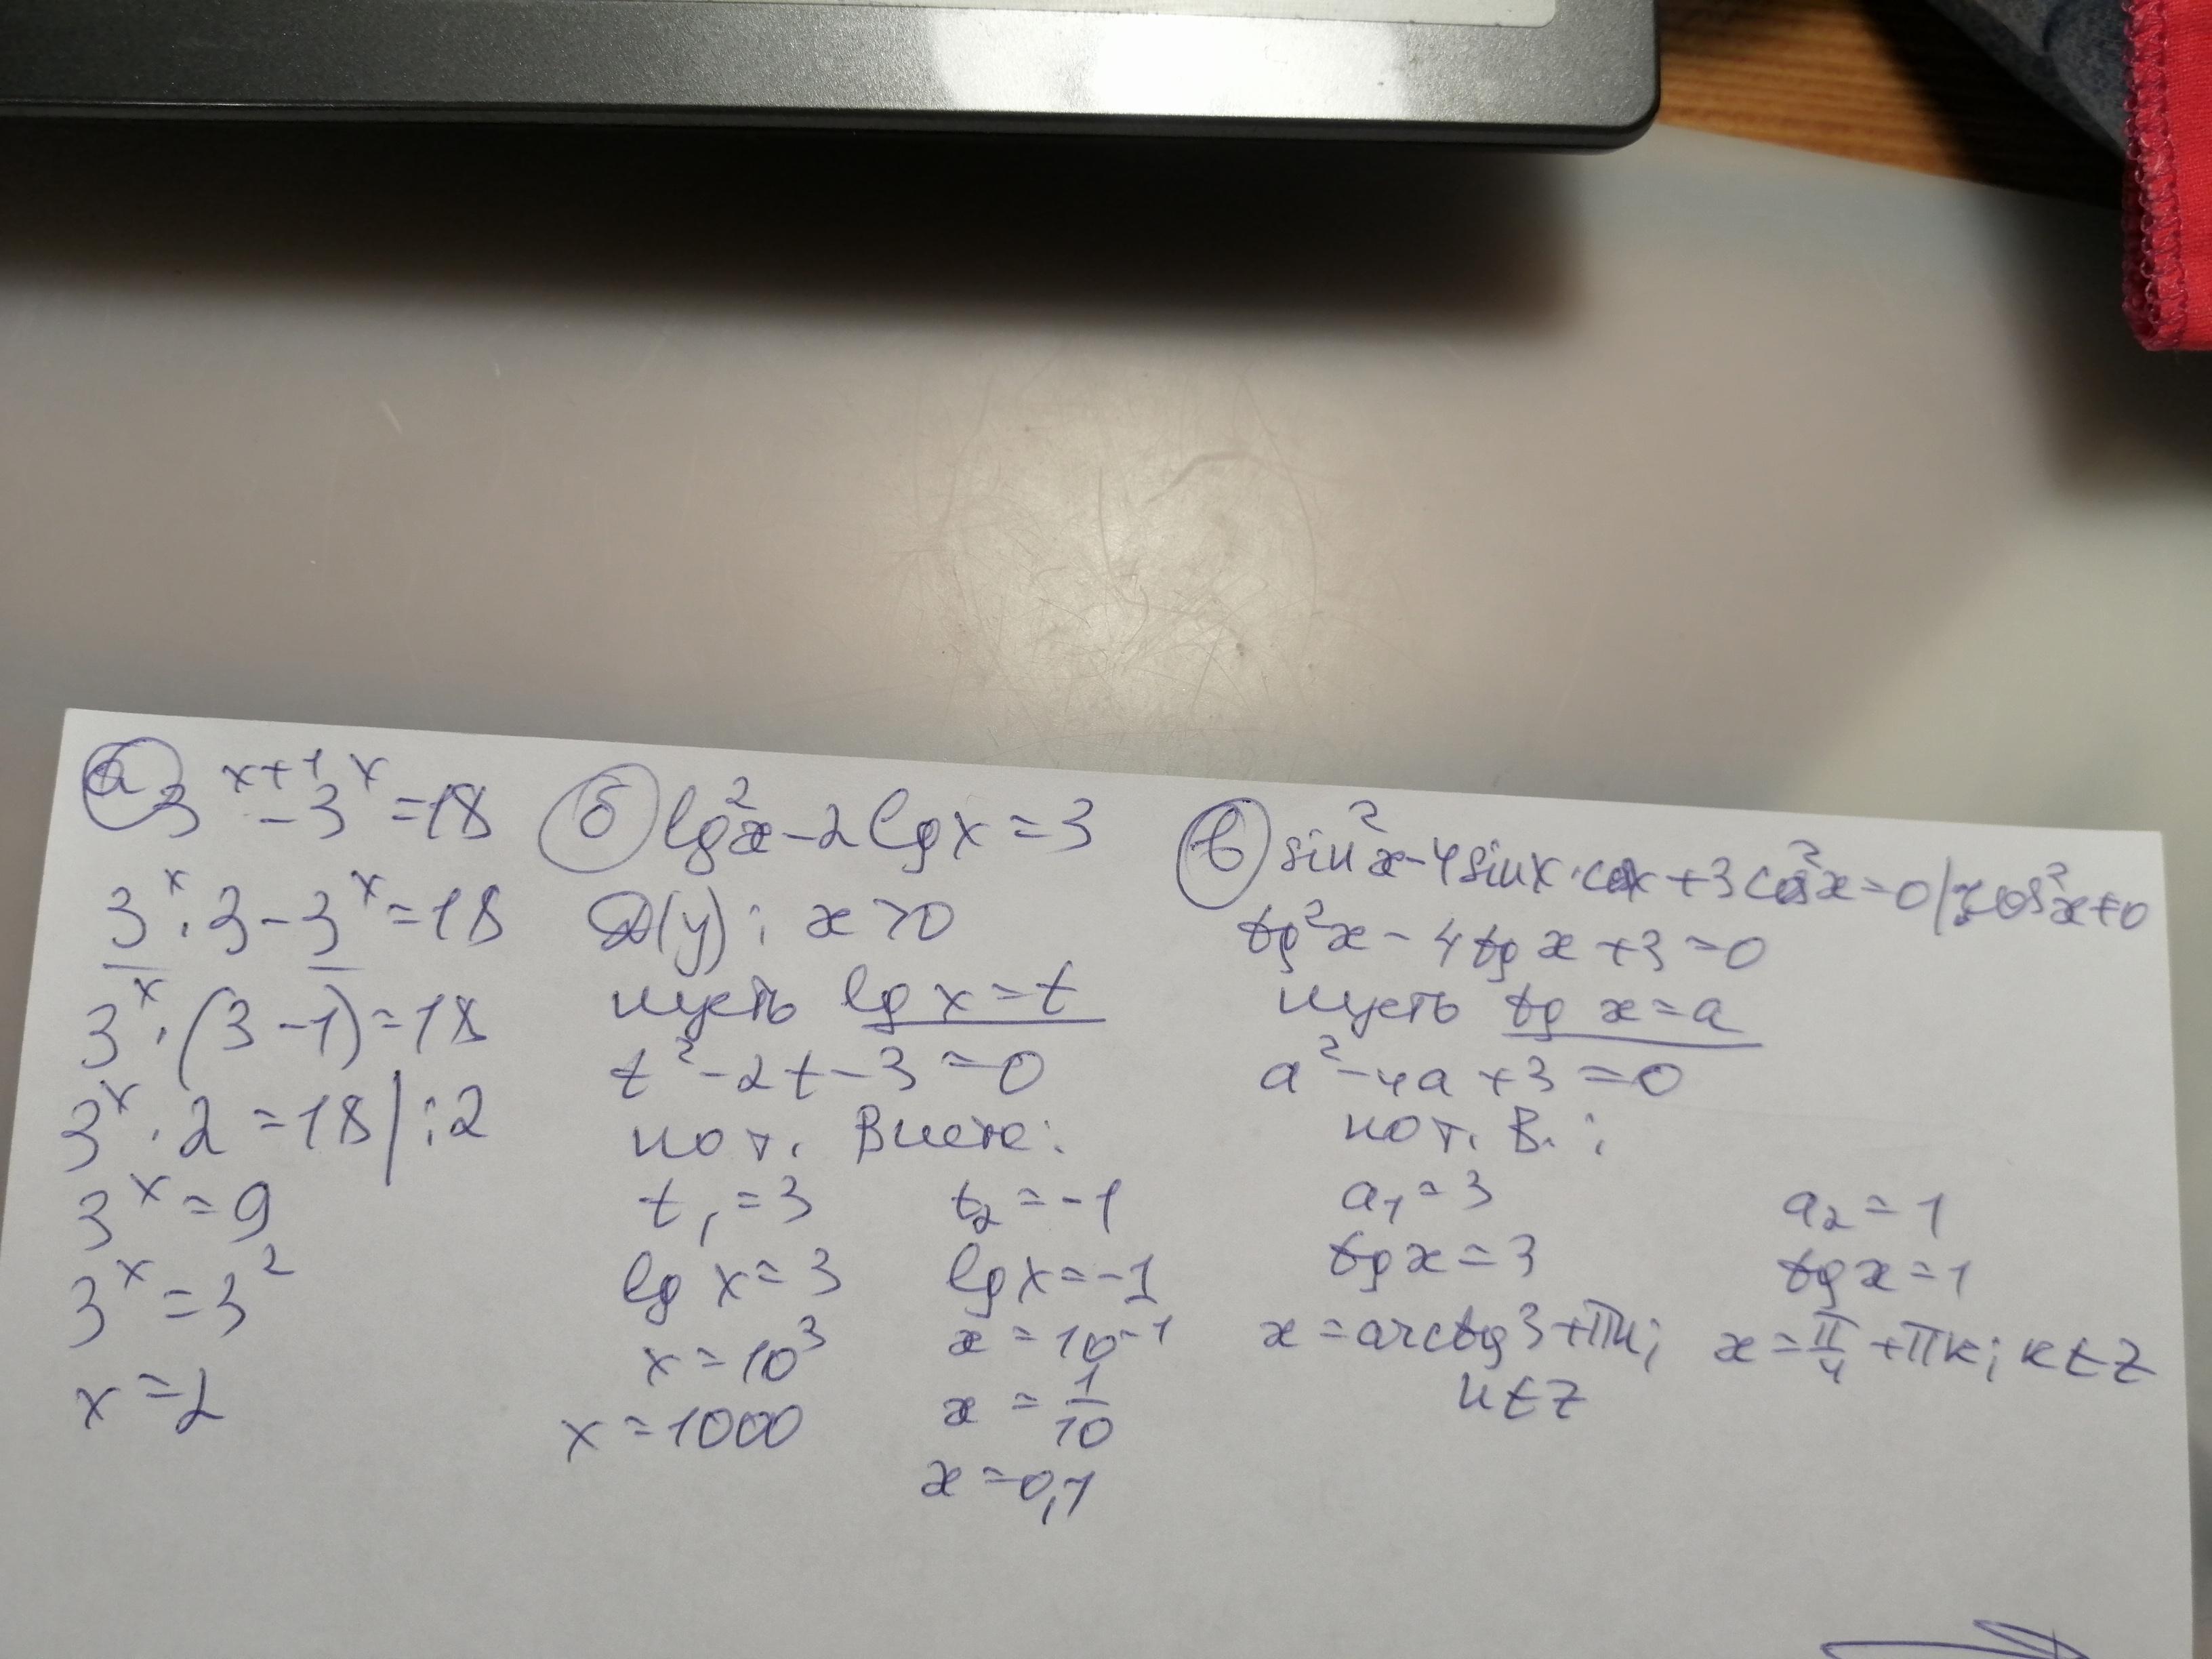 а) 3^(x+1) - 3^x = 18
3^x · 3 - 3^x = 18
3^x · (3 - 1) = 18
3^x · 2 = 18 | : 2
3^x = 9
3^x = 3^2
x = 2
б) lg²x - 2 lg x = 3
D(y): x > 0
пусть lg x = t
t² - 2t - 3 = 0
по т. Виета:
t₁ = 3 t₂ = -1
lg x = 3 lg x = -1
x = 10³ x = 10⁻¹
x = 1000 x = 1/10
x = 0,1
в) sin²x - 4 sin x · cos x + 3 cos²x = 0 | : cos²x ≠ 0
tg²x - 4 tg x + 3 = 0
пусть tg x = a
a² - 4a + 3 = 0
по т. В.:
a₁ = 3 a₂ = 1
tg x = 3 tg x = 1
x = arctg 3 + πn; x = π/4 + πk; k ∈ Z
n ∈ Z